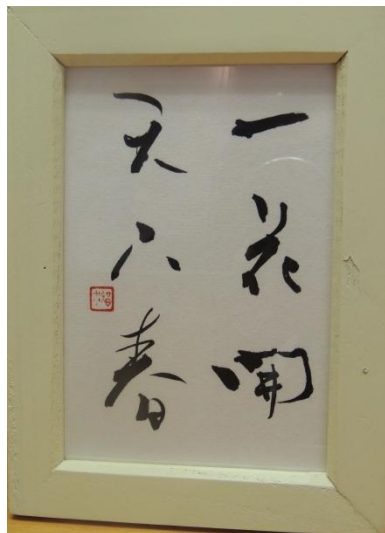 一花開
天下春